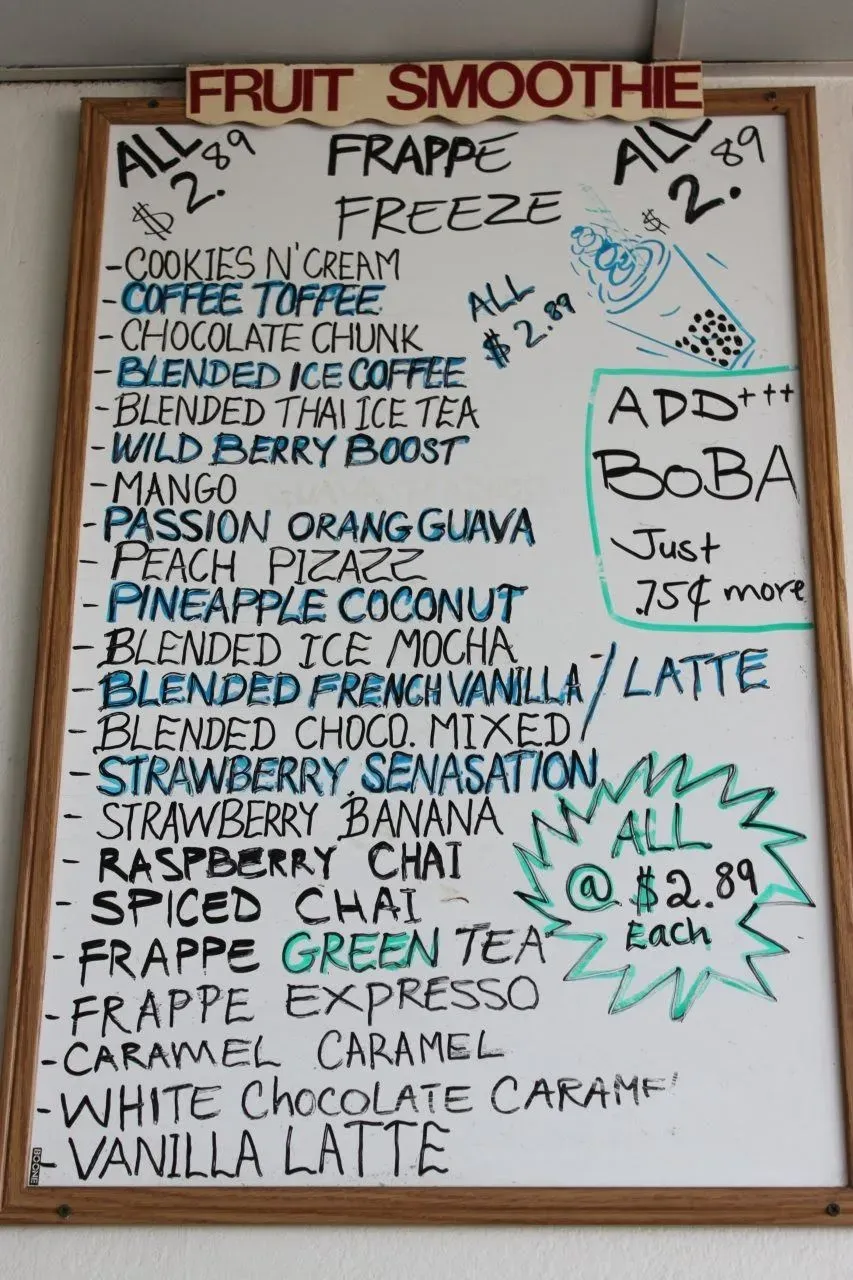 FRUIT SMOOTHIE
ALL $2.89
FRAPPE
FREEZE
ALL $2.89
-COOKIES N'CREAM
-COFFEE TOFFEE
-CHOCOLATE CHUNK
ALL $2.89
-BLENDED ICE COFFEE
-BLENDED THAI ICE TEA
-WILD BERRY BOOST
-MANGO
-PASSION ORANG GUAVA
-PEACH PIZAZZ
-PINEAPPLE COCONUT
-BLENDED ICE MOCHA
-BLENDED FRENCH VANILLA / LATTE
-BLENDED CHOCO. MIXED
-STRAWBERRY SENASATION
-STRAWBERRY BANANA
-RASPBERRY CHAI
-SPICED CHAI
-FRAPPE GREEN TEA
-FRAPPE EXPRESSO
-CARAMEL CARAMEL
-WHITE CHOCOLATE CARAME
-VANILLA LATTE
ADD+++
BOBA
Just
.75¢ more
ALL
@ $2.89
Each
BOONE